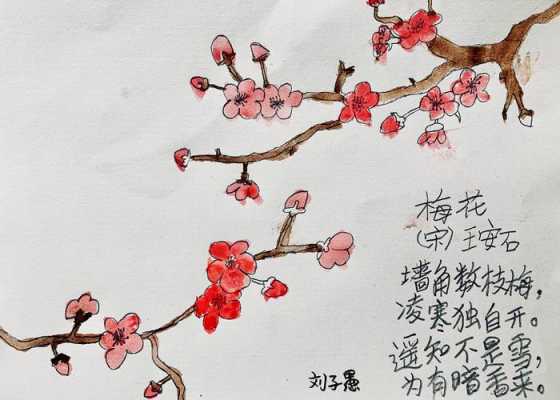 梅花
(宋)王安石
墙角数枝梅，
凌寒独自开。
遥知不是雪，
为有暗香来。
刘子愚